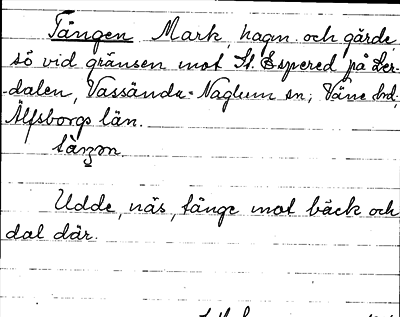 Tången Mark, hagm. och gärde
sö vid gränsen mot St. Espered på Ler-
dalen, Vassända-Naglum sn, Väne hd,
Älfsborgs län.
Udde, näs, tånge mot bäck och
dal där.